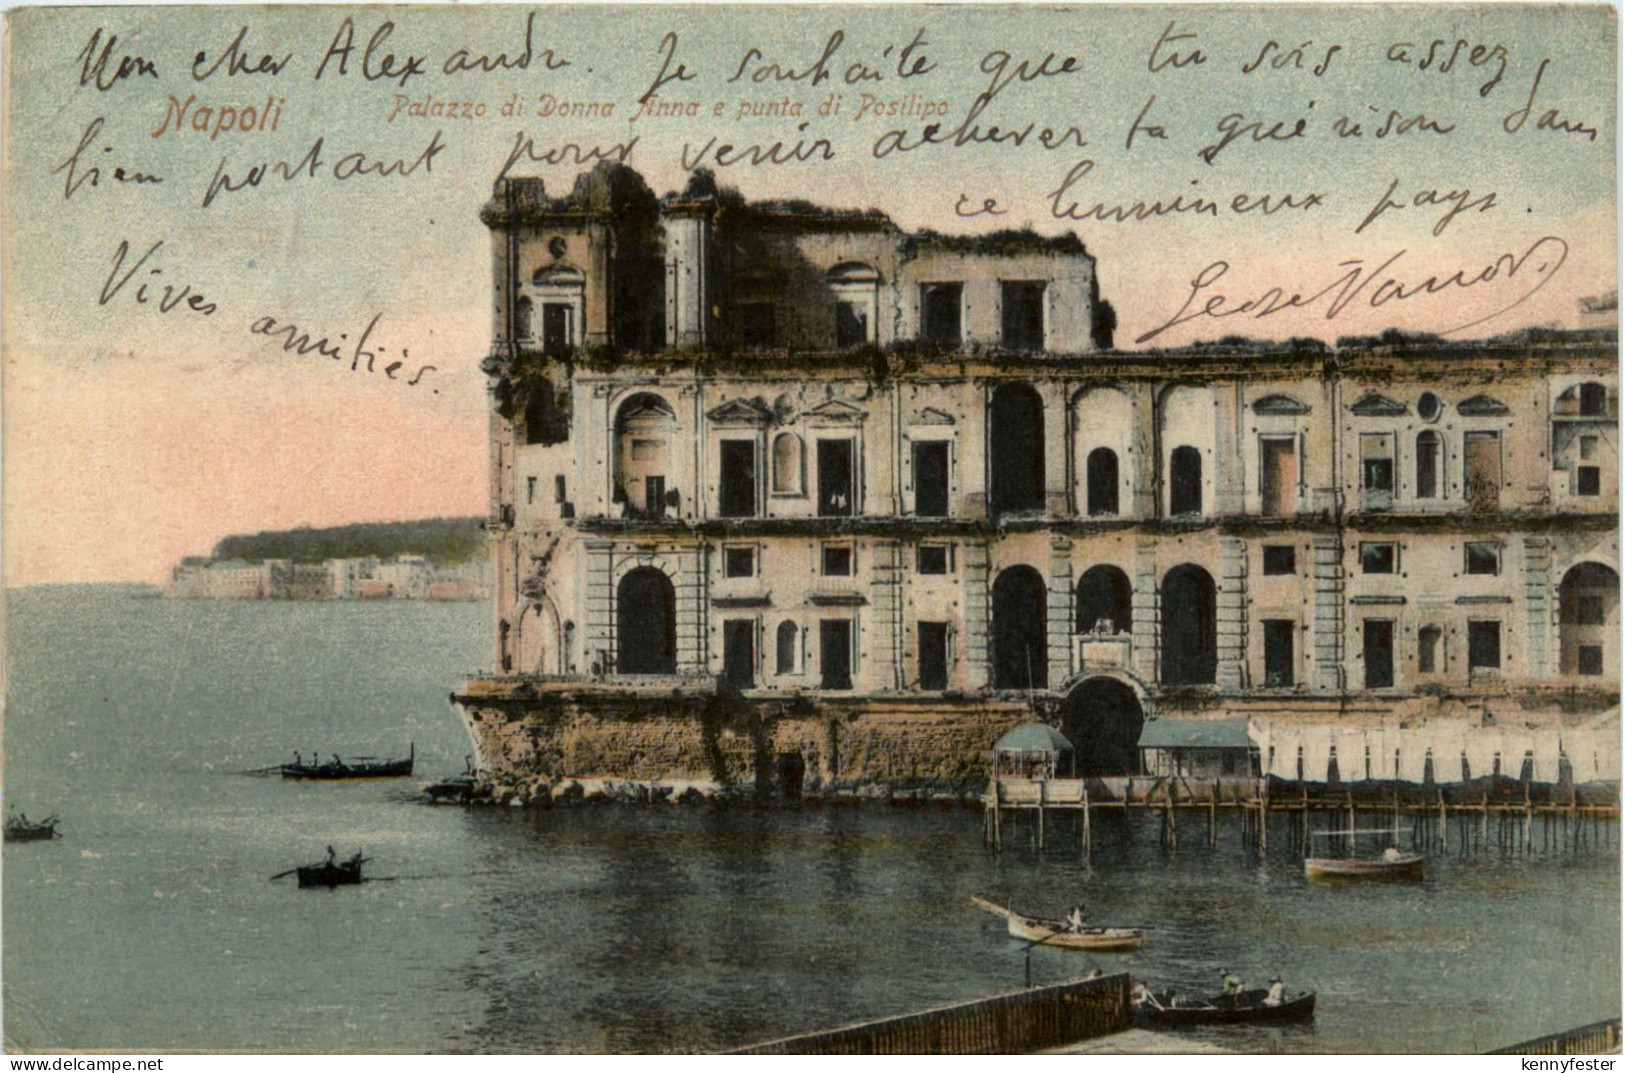 Mon cher Alexandre. Je souhaite que tu sois assez
Napoli Palazzo di Donna Anna e punta di Posilipo
bien portant pour venir achever ta guérison dans
ce lumineux pays.
Vives
amitiés.
Delcampe.net
kennyfester